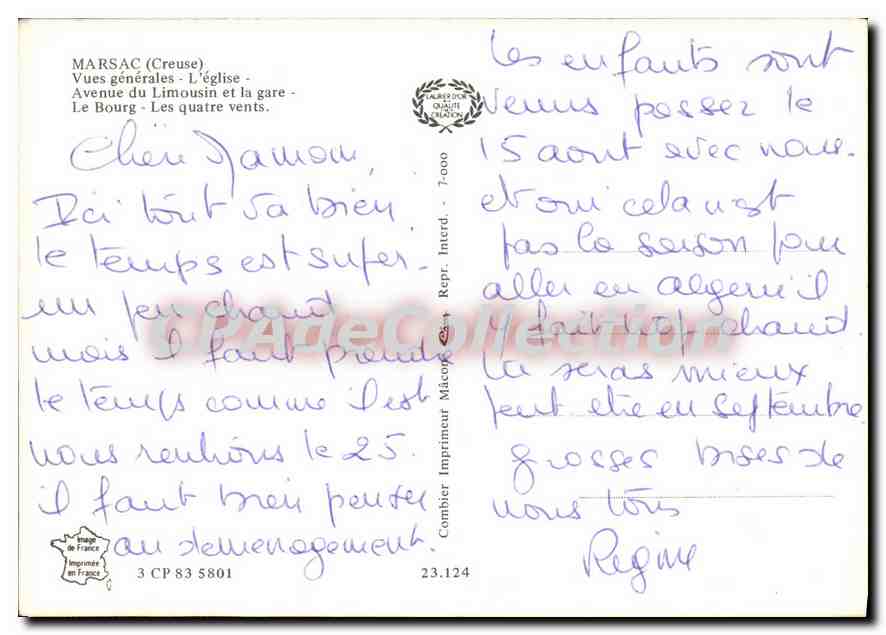 MARSAC (Creuse)
Vues générales - L'église -
Avenue du Limousin et la gare -
Le Bourg - Les quatre vents.
LAURIER D'OR
DE LA
QUALITÉ
CRÉATION
Chère Maman,
Ici tout va bien.
le temps est super.
un peu chaud
mais il faut prendre
le temps comme il est
nous rentrons le 25.
il faut bien penser
au demenagement.
Image
de France
Imprimée
en France
3 CP 83 5801
23.124
Combier Imprimeur Mâcon
Repr. Interd. - 7-000
les enfants sont
venus passer le
15 aout avec nous.
et oui cela n'est
pas la saison pour
aller en algerie il
y fait trop chaud.
tu seras mieux
peut etre en septembre.
grosses bises de
nous tous
Regine
CPAdeCollection